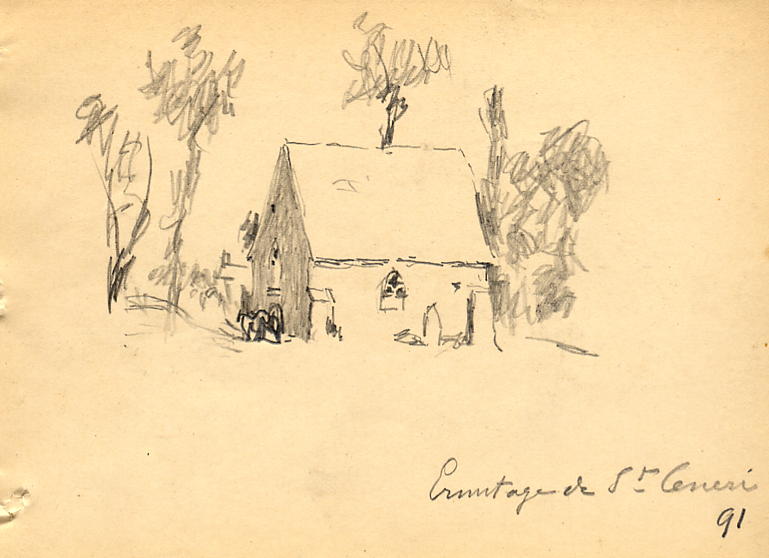 Ermitage de St Ceneri
91